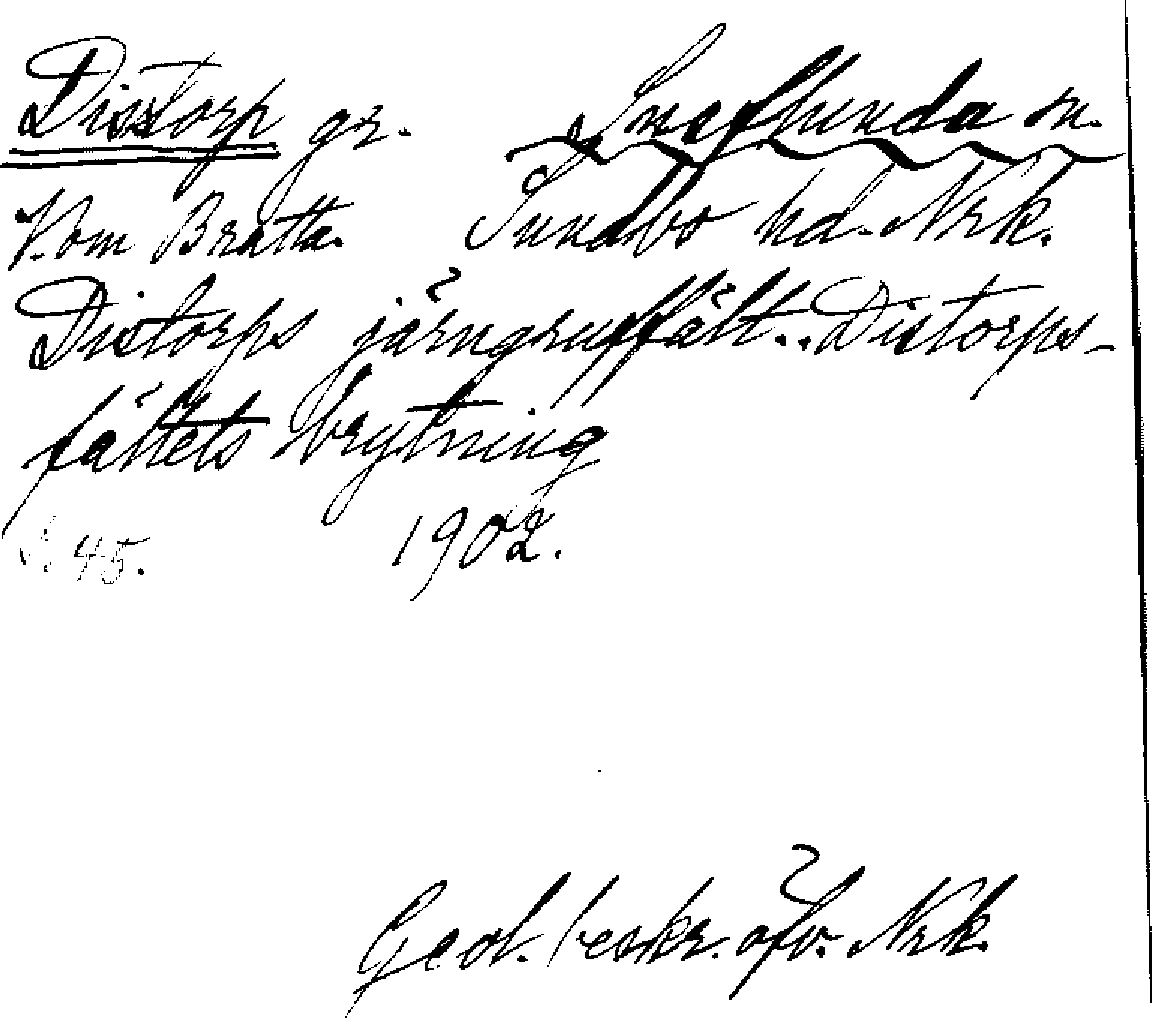 Disstorp gr. Snaflunda sn.
V. om Bratta. Sundbo hd. Nrk.
Distorps järngruffält. . Distorps-
fältets brytning
S. 45. 1902.
Geol. beskr. öfv. Nrk.